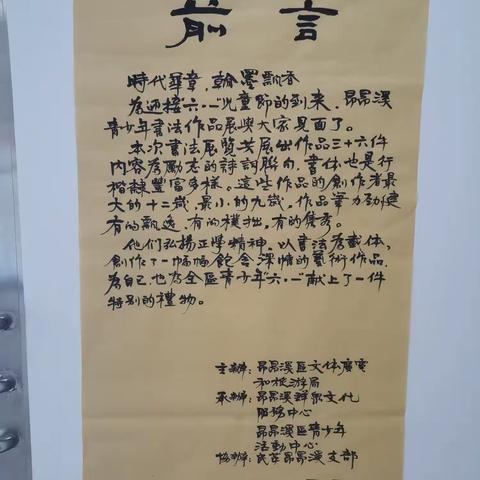 前言
時代華章，翰墨飘香
為迎接六·一兒童節的到来，昂昂溪
青少年書法作品展與大家見面了。
本次書法展覽共展出作品三十六件
内容為勵志的詩詞聯句，書体也是行
楷隸豐富多樣。這些作品的創作者最
大的十二歲，最小的九歲。作品筆力劲健
有的飘逸，有的樸拙，有的隽秀。
他们弘揚正學精神，以書法為載体，
創作了一幅幅飽含深情的藝術作品，
為自己，也為全區青少年“六·一”献上了一件
特别的禮物。
主辦：昂昂溪區文体廣電
和旅游局
承辦：昂昂溪群众文化
服務中心
昂昂溪區青少年
活動中心
協辦：民革昂昂溪支部